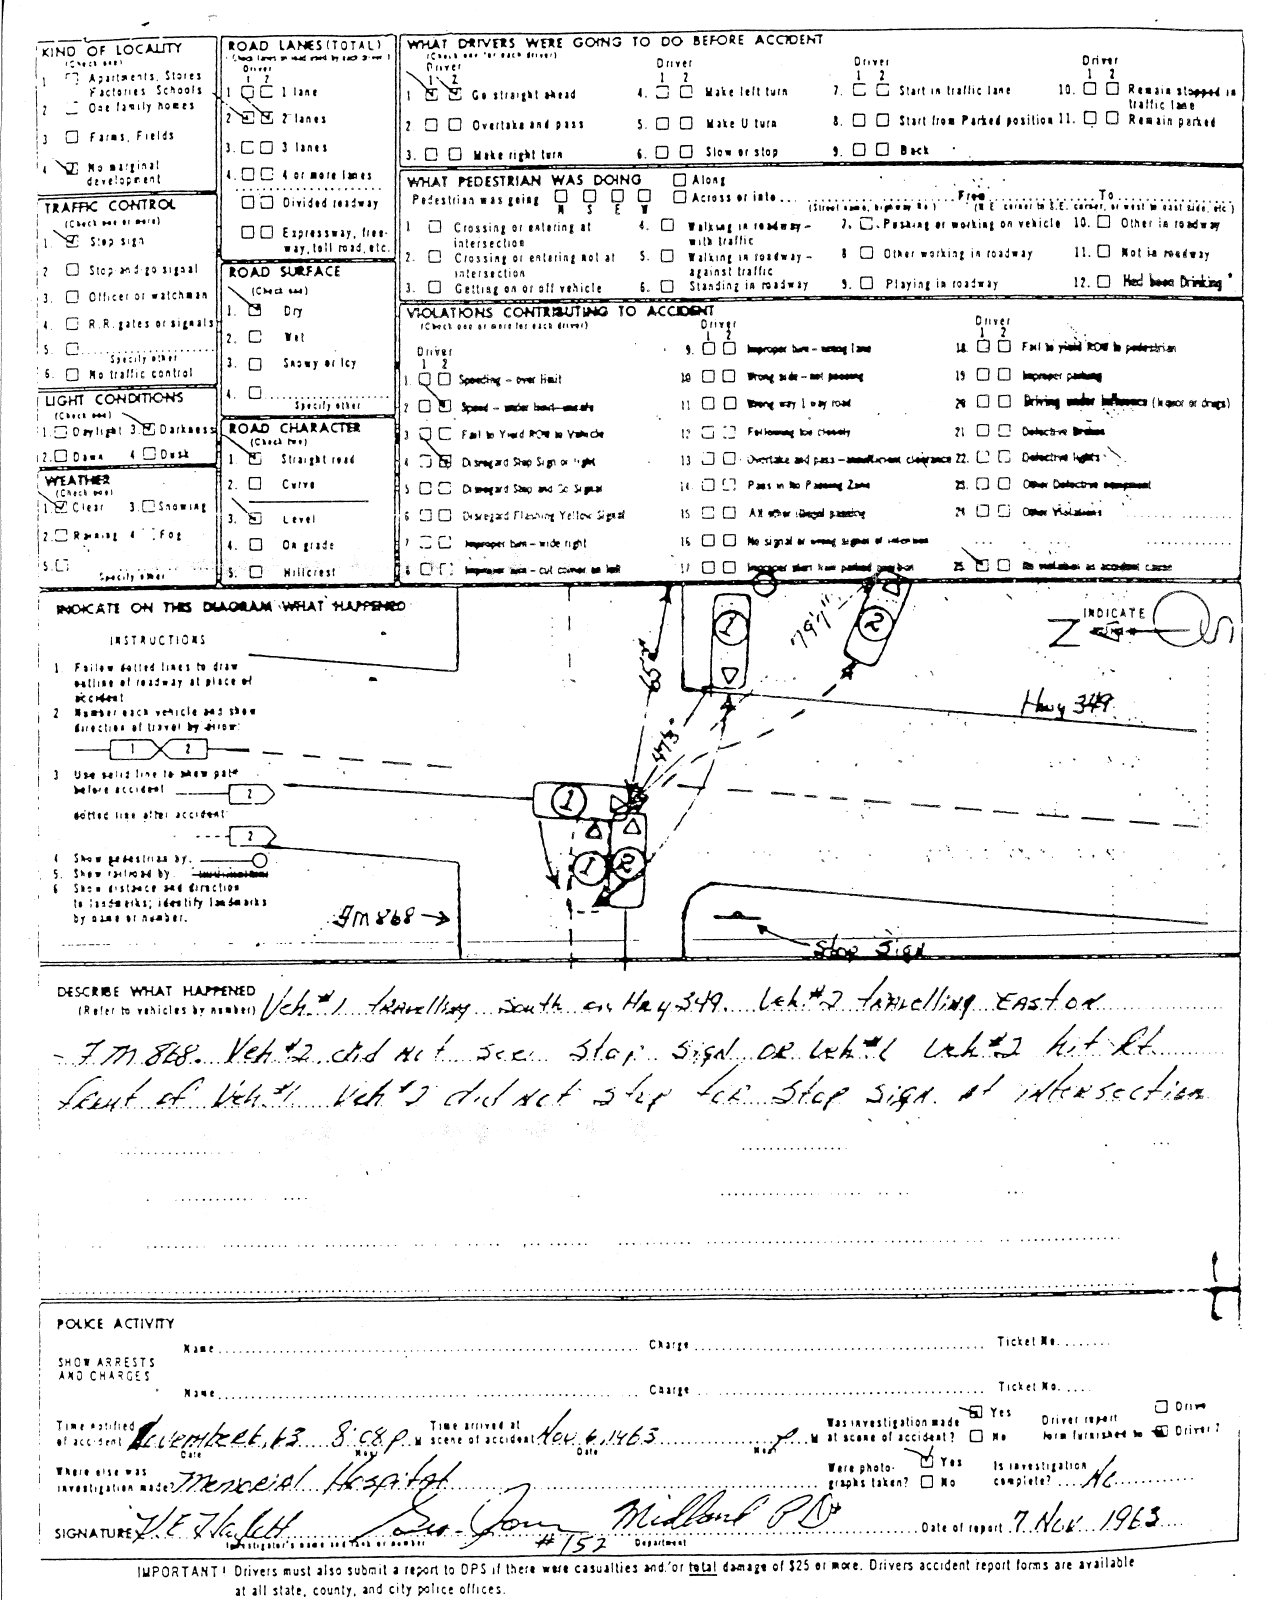 KIND OF LOCALITY
(Check one)
1 Apartments, Stores
Factories, Schools
2 One family homes
3 Farms, Fields
4 No marginal
development
TRAFFIC CONTROL
(Check one or more)
1. Stop sign
2 Stop and go signal
3. Officer or watchman
4. R.R. gates or signals
5.
Specify other
6. No traffic control
LIGHT CONDITIONS
(Check one)
1. Daylight 3. Darkness
2. Dawn 4 Dusk
WEATHER
(Check one)
1. Clear 3. Snowing
2. Raining 4 Fog
5.
Specify other
ROAD LANES (TOTAL)
Driver
1 2
1 1 lane
2 2 lanes
3. 3 lanes
4. 4 or more lanes
Divided roadway
Expressway, free-
way, toll road, etc.
ROAD SURFACE
(Check one)
1. Dry
2. Wet
3. Snowy or Icy
4.
Specify other
ROAD CHARACTER
(Check two)
1. Straight road
2. Curve
3. Level
4. On grade
5. Hillcrest
WHAT DRIVERS WERE GOING TO DO BEFORE ACCIDENT
(Check one for each driver)
Driver
1 2
1 Go straight ahead
2 Overtake and pass
3. Make right turn
Driver
1 2
4. Make left turn
5. Make U turn
6. Slow or stop
Driver
1 2
7. Start in traffic lane
8. Start from Parked position
9. Back
Driver
1 2
10. Remain stopped in
traffic lane
11. Remain parked
WHAT PEDESTRIAN WAS DOING
Along
Pedestrian was going N S E W Across or into From To
(Street name, highway No.) (N.E. corner to S.E. corner, or west to east side, etc.)
1 Crossing or entering at
intersection
2. Crossing or entering not at
intersection
3. Getting on or off vehicle
4. Walking in roadway -
with traffic
5. Walking in roadway -
against traffic
6. Standing in roadway
7. Pushing or working on vehicle
8 Other working in roadway
9. Playing in roadway
10. Other in roadway
11. Not in roadway
12. Had been Drinking
VIOLATIONS CONTRIBUTING TO ACCIDENT
(Check one or more for each driver)
Driver
1 2
1. Speeding - over limit
2 Speed - under limit - unsafe
3 Fail to Yield ROW to Vehicle
4 Disregard Stop Sign or light
5 Disregard Stop and Go Signal
6 Disregard Flashing Yellow Signal
7 Improper turn - wide right
8 Improper turn - cut corner on left
Driver
1 2
9. Improper turn - wrong lane
10 Wrong side - not passing
11 Wrong way 1 way road
12 Following too closely
13 Overtake and pass - insufficient clearance
14 Pass in No Passing Zone
15 All other illegal passing
16 No signal or wrong signal of intention
17 Improper start from parked position
Driver
1 2
18 Fail to yield ROW to pedestrian
19 Improper parking
20 Driving under influence (liquor or drugs)
21 Defective Brakes
22. Defective lights
23. Other Defective equipment
24 Other Violations
25 No violation as accident cause
INDICATE ON THIS DIAGRAM WHAT HAPPENED
INSTRUCTIONS
1 Follow dotted lines to draw
outline of roadway at place of
accident
2 Number each vehicle and show
direction of travel by arrow:
1 2
3 Use solid line to show path
before accident 2
dotted line after accident
2
4 Show pedestrian by:
5. Show railroad by
6 Show distance and direction
to landmarks; identify landmarks
by name or number.
1
79'7"
2
INDICATE
N
65'
47'3"
Hwy 349
1
1 2
FM 868
Stop Sign
DESCRIBE WHAT HAPPENED Veh. #1 travelling South on Hwy 349. Veh. #2 travelling East on
(Refer to vehicles by number)
FM 868. Veh #2 did not see Stop Sign or Veh #1 Veh #2 hit Rt
front of Veh #1 Veh #2 did not stop for Stop Sign at intersection
POLICE ACTIVITY
SHOW ARRESTS
AND CHARGES
Name Charge Ticket No.
Name Charge Ticket No.
Time notified
of accident November 6, 63 8:08 P M
Date Hour
Time arrived at
scene of accident Nov 6, 1963 P M
Date Hour
Was investigation made
at scene of accident? Yes No
Driver report
form furnished to Driver 2
Where else was
investigation made Memorial Hospital
Were photo-
graphs taken? Yes No
Is investigation
complete? No
SIGNATURE #152 Midland PD Date of report 7 Nov 1963
Investigator's name and rank or number Department
IMPORTANT! Drivers must also submit a report to DPS if there were casualties and/or total damage of $25 or more. Drivers accident report forms are available
at all state, county, and city police offices.